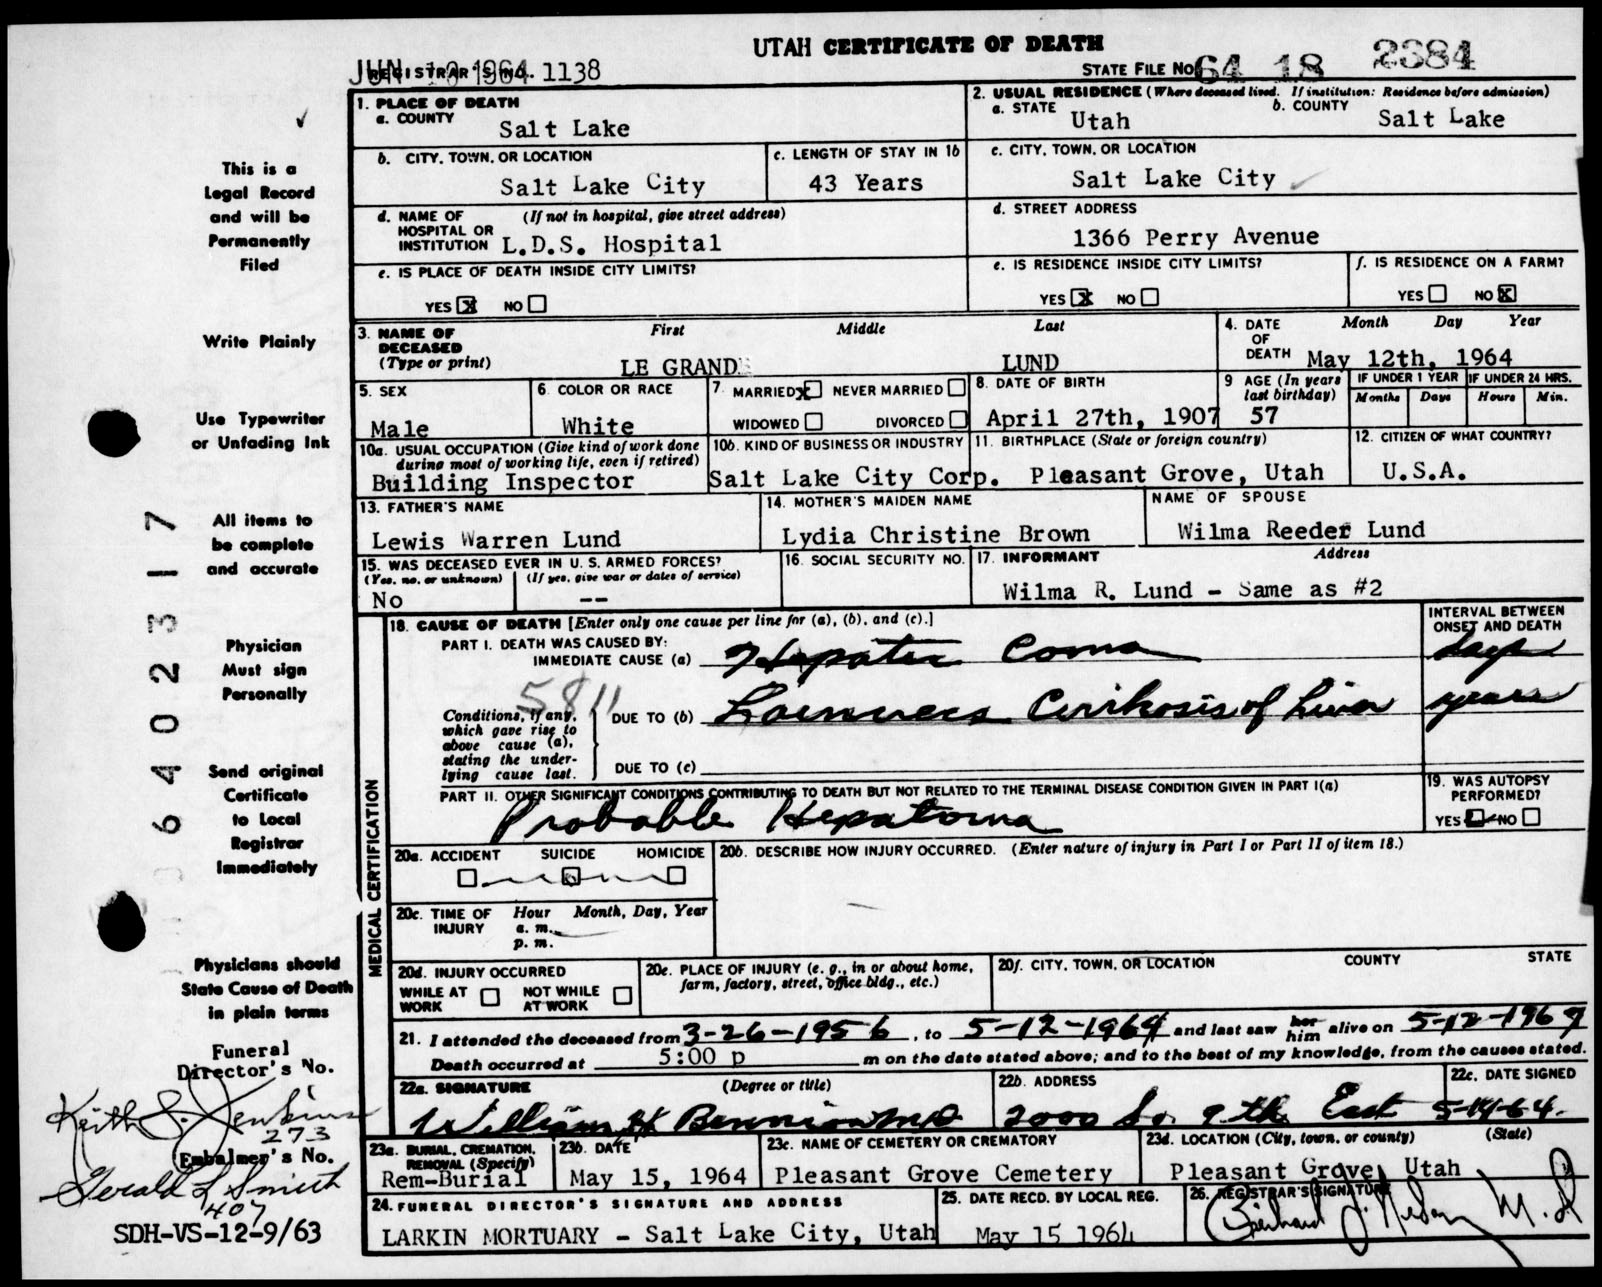 UTAH CERTIFICATE OF DEATH
JUN 10 1964
REGISTRAR'S NO. 1138
STATE FILE NO. 64 18 2384
1. PLACE OF DEATH
a. COUNTY
Salt Lake
2. USUAL RESIDENCE (Where deceased lived. If institution: Residence before admission)
a. STATE Utah
b. COUNTY Salt Lake
b. CITY, TOWN, OR LOCATION
Salt Lake City
c. LENGTH OF STAY IN 1b
43 Years
c. CITY, TOWN, OR LOCATION
Salt Lake City
d. NAME OF HOSPITAL OR INSTITUTION (If not in hospital, give street address)
L.D.S. Hospital
d. STREET ADDRESS
1366 Perry Avenue
e. IS PLACE OF DEATH INSIDE CITY LIMITS?
YES X NO
e. IS RESIDENCE INSIDE CITY LIMITS?
YES X NO
f. IS RESIDENCE ON A FARM?
YES NO X
3. NAME OF DECEASED (Type or print)
First Middle Last
LE GRAND LUND
4. DATE OF DEATH
Month Day Year
May 12th, 1964
5. SEX
Male
6. COLOR OR RACE
White
7. MARRIED X NEVER MARRIED
WIDOWED DIVORCED
8. DATE OF BIRTH
April 27th, 1907
9 AGE (In years last birthday)
57
IF UNDER 1 YEAR
Months Days
IF UNDER 24 HRS.
Hours Min.
10a. USUAL OCCUPATION (Give kind of work done during most of working life, even if retired)
Building Inspector
10b. KIND OF BUSINESS OR INDUSTRY
Salt Lake City Corp.
11. BIRTHPLACE (State or foreign country)
Pleasant Grove, Utah
12. CITIZEN OF WHAT COUNTRY?
U.S.A.
13. FATHER'S NAME
Lewis Warren Lund
14. MOTHER'S MAIDEN NAME
Lydia Christine Brown
NAME OF SPOUSE
Wilma Reeder Lund
15. WAS DECEASED EVER IN U. S. ARMED FORCES?
(Yes, no, or unknown) (If yes, give war or dates of service)
No --
16. SOCIAL SECURITY NO.
17. INFORMANT Address
Wilma R. Lund - Same as #2
MEDICAL CERTIFICATION
18. CAUSE OF DEATH [Enter only one cause per line for (a), (b), and (c).]
INTERVAL BETWEEN ONSET AND DEATH
PART I. DEATH WAS CAUSED BY:
IMMEDIATE CAUSE (a) Hepatic Coma days
5811
Conditions, if any, which gave rise to above cause (a), stating the underlying cause last.
DUE TO (b) Laennecs Cirrhosis of Liver years
DUE TO (c)
PART II. OTHER SIGNIFICANT CONDITIONS CONTRIBUTING TO DEATH BUT NOT RELATED TO THE TERMINAL DISEASE CONDITION GIVEN IN PART I(a)
Probable Hepatoma
19. WAS AUTOPSY PERFORMED?
YES NO
20a. ACCIDENT SUICIDE HOMICIDE
20b. DESCRIBE HOW INJURY OCCURRED. (Enter nature of injury in Part I or Part II of item 18.)
20c. TIME OF INJURY
Hour Month, Day, Year
a. m.
p. m.
20d. INJURY OCCURRED
WHILE AT WORK NOT WHILE AT WORK
20e. PLACE OF INJURY (e. g., in or about home, farm, factory, street, office bldg., etc.)
20f. CITY, TOWN, OR LOCATION COUNTY STATE
21. I attended the deceased from 3-26-1956, to 5-12-1964 and last saw her him alive on 5-12-1964
Death occurred at 5:00 p m on the date stated above; and to the best of my knowledge, from the causes stated.
22a. SIGNATURE (Degree or title)
William H Bennion MD
22b. ADDRESS
2000 So. 9th East
22c. DATE SIGNED
5-14-64.
23a. BURIAL, CREMATION, REMOVAL (Specify)
Rem-Burial
23b. DATE
May 15, 1964
23c. NAME OF CEMETERY OR CREMATORY
Pleasant Grove Cemetery
23d. LOCATION (City, town, or county) (State)
Pleasant Grove, Utah
24. FUNERAL DIRECTOR'S SIGNATURE AND ADDRESS
LARKIN MORTUARY - Salt Lake City, Utah
25. DATE RECD. BY LOCAL REG.
May 15 1964
26. REGISTRAR'S SIGNATURE
M.D
This is a
Legal Record
and will be
Permanently
Filed
Write Plainly
Use Typewriter
or Unfading Ink
All items to
be complete
and accurate
Physician
Must sign
Personally
Send original
Certificate
to Local
Registrar
Immediately
Physicians should
State Cause of Death
in plain terms
Funeral
Director's No.
Keith S. Jenkins
273
Embalmer's No.
Gerald L Smith
407
SDH-VS-12-9/63
6402317